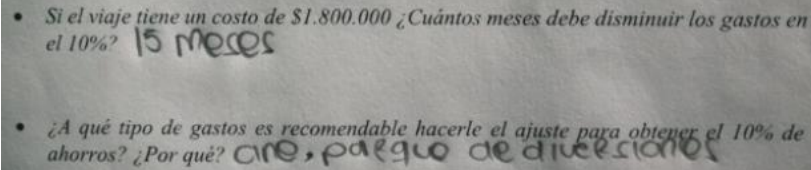 • Si el viaje tiene un costo de $1.800.000 ¿Cuántos meses debe disminuir los gastos en
el 10%? 15 meses
• ¿A qué tipo de gastos es recomendable hacerle el ajuste para obtener el 10% de
ahorros? ¿Por qué? cine, parque de diversiones